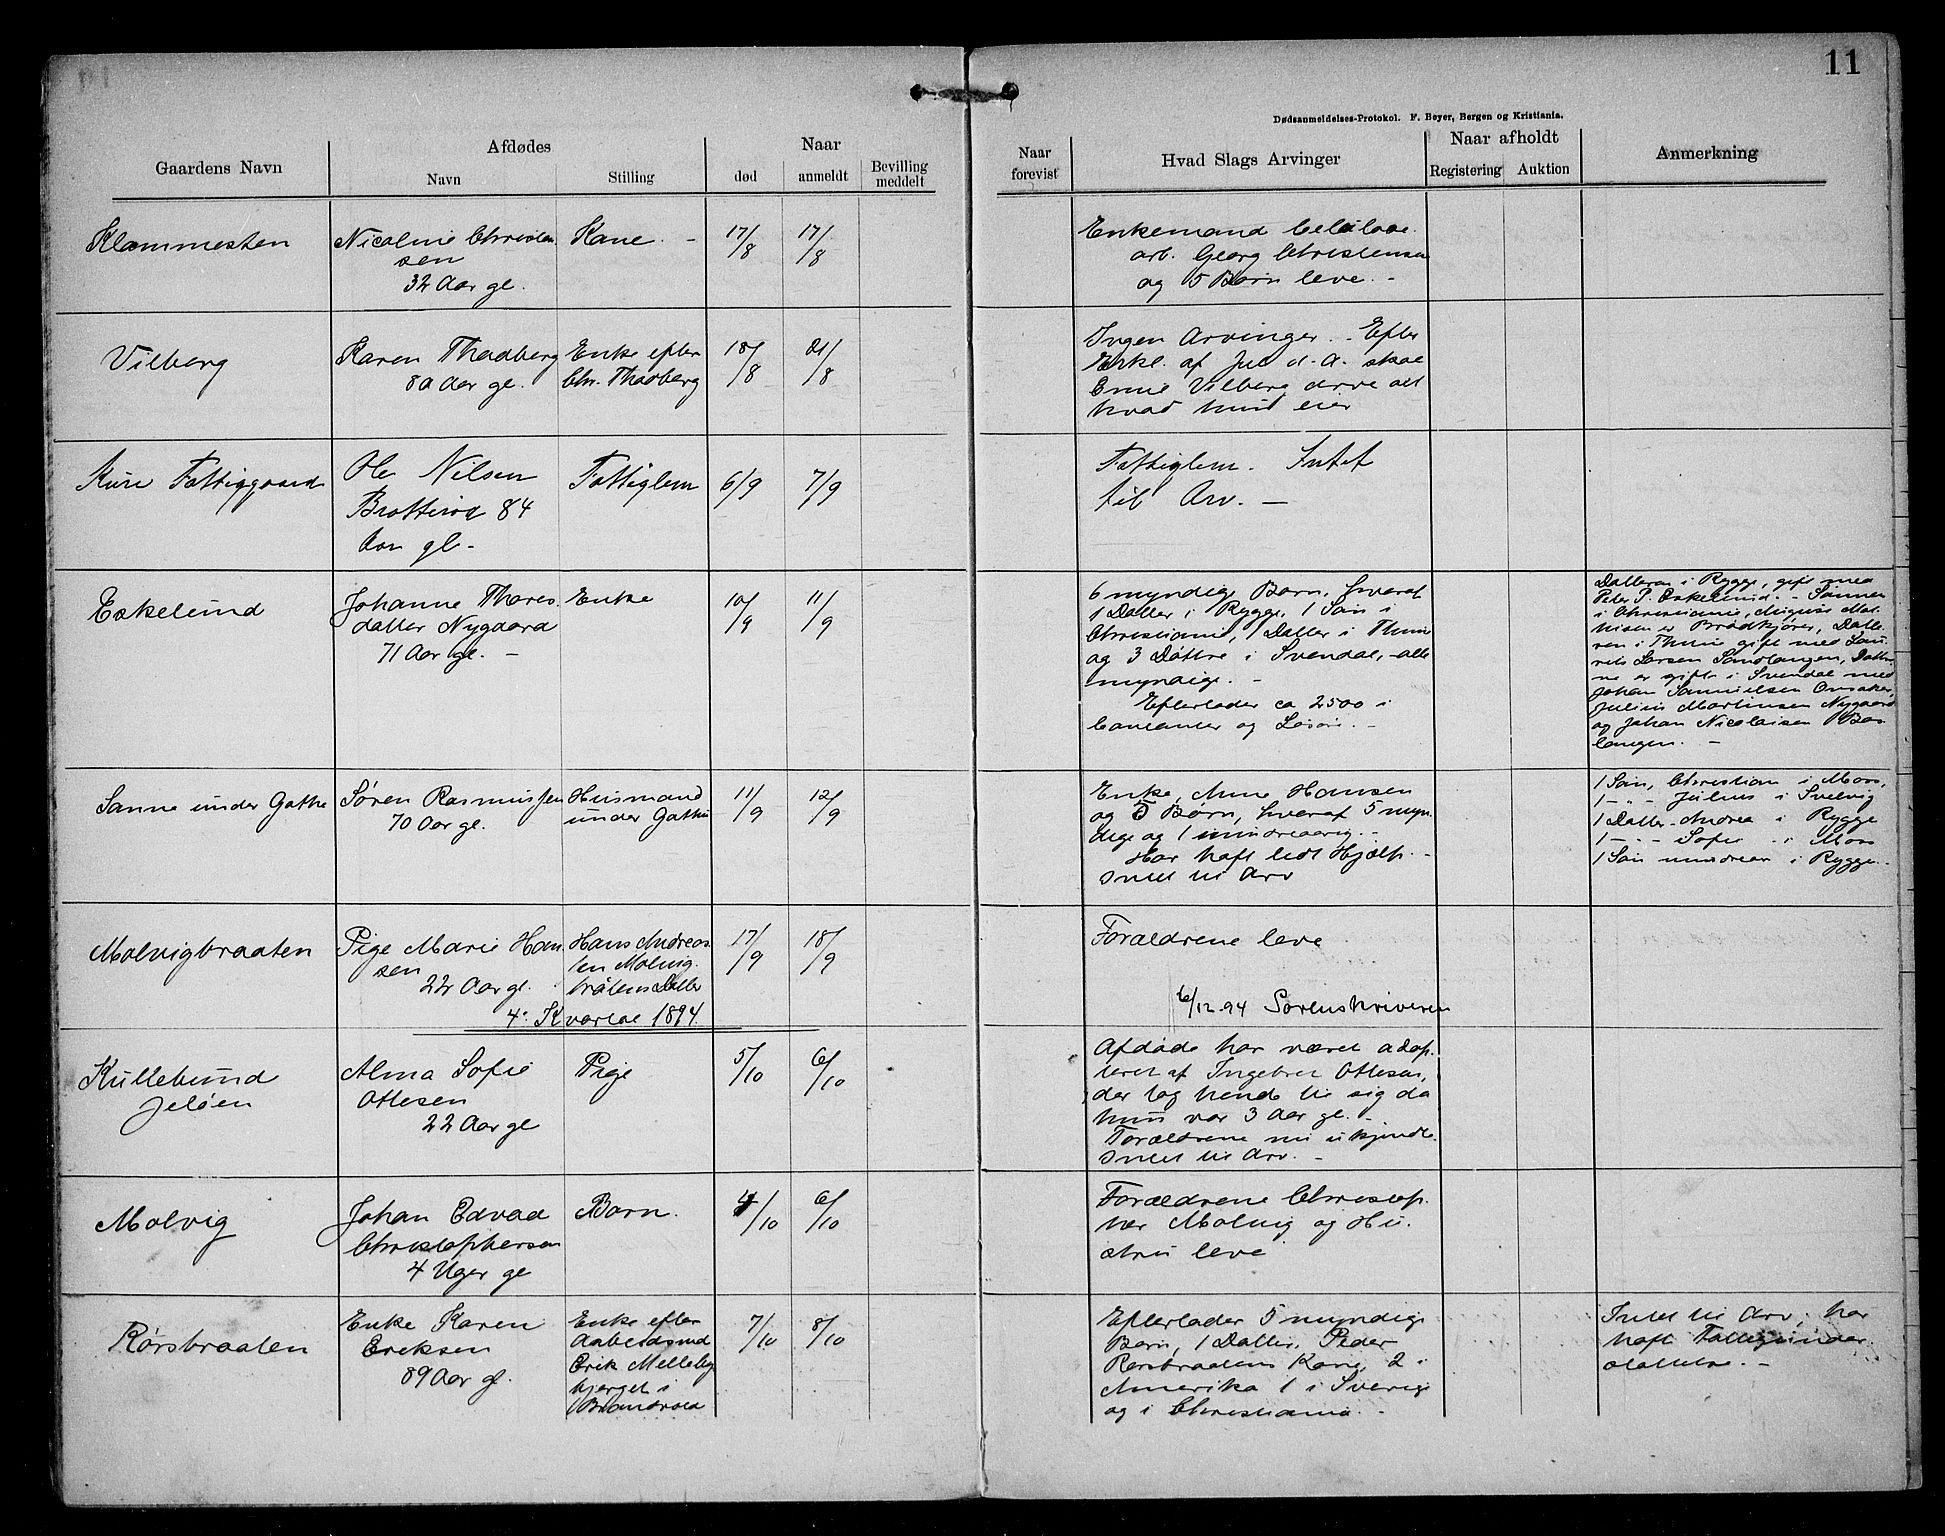 11
Dødsanmeldelses-Protokol. F. Beyer, Bergen og Kristiania.
Gaardens Navn
Afdødes
Navn
Stilling
Naar
død
anmeldt
Bevilling
meddelt
Naar
forevist
Hvad Slags Arvinger
Naar afholdt
Registering
Auktion
Anmerkning
Klommesten
Nicoline Christen
sen
32 Aar gl.
Kone. -
17/8
17/8
Enkemand
arb. Georg Christensen
og 5 Børn leve. -
Vilberg
Karen Thadberg
80 Aar gl.
Enke efter
Chr. Thadberg
18/8
21/8
Ingen Arvinger. - Efter
Erkl. af Jul d. A. skal
Vilberg arve alt
hvad hun eier
Kure Fattiggaard
Ole Nilsen
Brotterød 84
Aar gl -
Fattiglem
6/9
7/9
Fattiglem. Intet
til Arv. —
Eskelund
Johanne Thores
datter Nygaard
71 Aar gl. -
Enke
10/9
11/9
6 myndige Børn, hvoraf
1 Datter i Rygge, 1 Søn i
Christiania, 1 Datter i Thune
og 3 Døttre i Svendal, - alle
myndige. -
Efterlader ca 2500 i
Contanter og Løsøre. -
Datteren i Rygge, gift med
Peter P. Eskelund. - Sønnen
i Christiania, August Mat
hisen er Brødkjører, Datte
ren i Thune gift med Lau
rits Larsen Sandtangen, Døttre
ne er gifte i Svendal med
Johan Samuelsen
Julius Martinsen Nygaard
og Johan Nicolaisen
langen. -
Sanne under Gothe
Søren Rasmussen
70 Aar gl.
Husmand
under Gothe
11/9
12/9
Enke, Anne Hansen
og 5 Børn, hvoraf 5 myn
dige og 1 mindreaarig. -
Har haft lidt Hjælp. -
Intet til Arv
1 Søn, Christian i Moss,
1 - " - Julius i Svelvig
1 Datter - Andrea i Rygge
1 - " - Sofie i Moss
1 Søn mindreaar i Rygge. -
Molvigbraaten
Pige Marie Han
sen
22 Aar gl.
Hans Andreas
sen Molvig
bråtens Datter
17/9
18/9
Forældrene leve
4. Kvartal 1894.
6/12.94 Sorenskriveren
Kullebund
Jeløen
Alma Sofie
Ottesen
22 Aar gl
Pige
5/10
6/10
Afdøde har været adop
teret af Ingebret Ottesen,
der tog hende til sig da
hun var 3 Aar gl. -
Forældrene nu ukjendte.
Intet til Arv. -
Molvig
Johan Edvad
Christophersen
4 Uger gl
Barn.
4/10
6/10
Forældrene Christop
her Molvig og Hu
stru leve
Rørsbraaten
Enke Karen
Eriksen
89 Aar gl.
Enke efter
Aabeidsmd
Erik Melleby
bjerget i
7/10
8/10
Efterlader 5 myndige
Børn, 1 Datter, Peder
Rørsbraatens Kone, 2 i
Amerika 1 i Sverige
og i Christiania. -
Intet til Arv, har
haft Fattigunder
støttelse. -